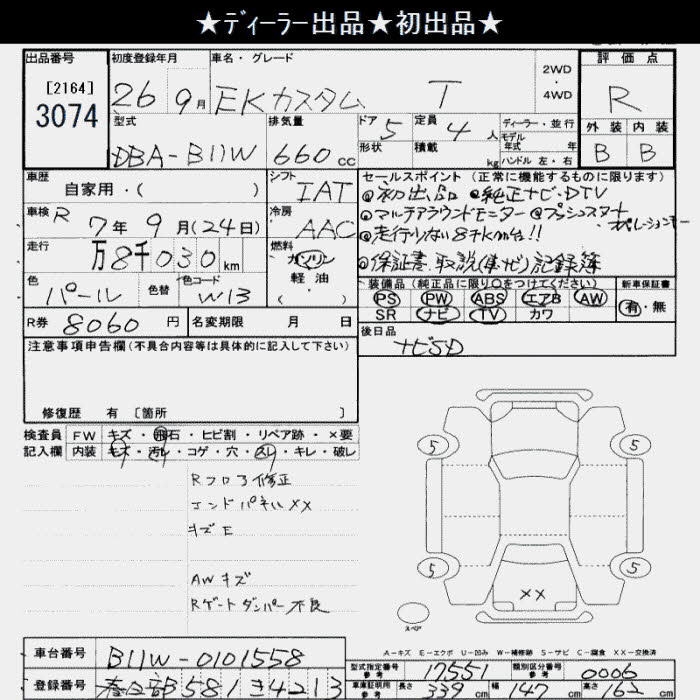 ★ディーラー出品★初出品★
出品番号
[2164]
3074
初度登録年月
26 9月
車名・グレード
EKカスタム T
2WD
4WD
評価点
R
外装 内装
B B
型式
DBA-B11W
排気量
660cc
ドア 5
定員 4人
形状
積載 kg
ディーラー・並行
モデル年式 年
ハンドル 左・右
車歴
自家用・( )
シフト
IAT
車検 R 7年9月(24日)
冷房
AAC
走行
万8千030km
燃料
ガソリン
軽油
( )
色
パール
色替
色コード
W13
R券 8060円
名変期限 月 日
セールスポイント(正常に機能するものに限ります)
◎初出品 ◎純正ナビ・DTV
◎マルチアラウンドモニター ◎プッシュスタート
・オペレーションキー
◎走行少ない8千km台!!
◎保証書・取説(車・ナビ)記録簿
装備品(純正品に限り○をつけてください)
PS PW ABS エアB AW
SR ナビ TV カワ
新車保証書
有・無
後日品
ナビSD
注意事項申告欄(不具合内容等は具体的に記入して下さい)
修復歴 有 [箇所 ]
検査員 FW キズ・飛石・ヒビ割・リペア跡・×要
記入欄 内装 キズ・汚レ・コゲ・穴・スレ・キレ・破レ
Rフロア修正
エンドパネルXX
キズE
AWキズ
Rゲートダンパー不良
5 5
5 5
XX
スペア
A-キズ E-エクボ U-凹み W-補修跡 S-サビ C-腐食 XX-交換済
車台番号 B11W-0101558
登録番号 春日部581き4213
型式指定番号 参考 17551
類別区分番号 参考 0006
車車証明用 参考 長さ 339cm 幅 147cm 高さ 162cm